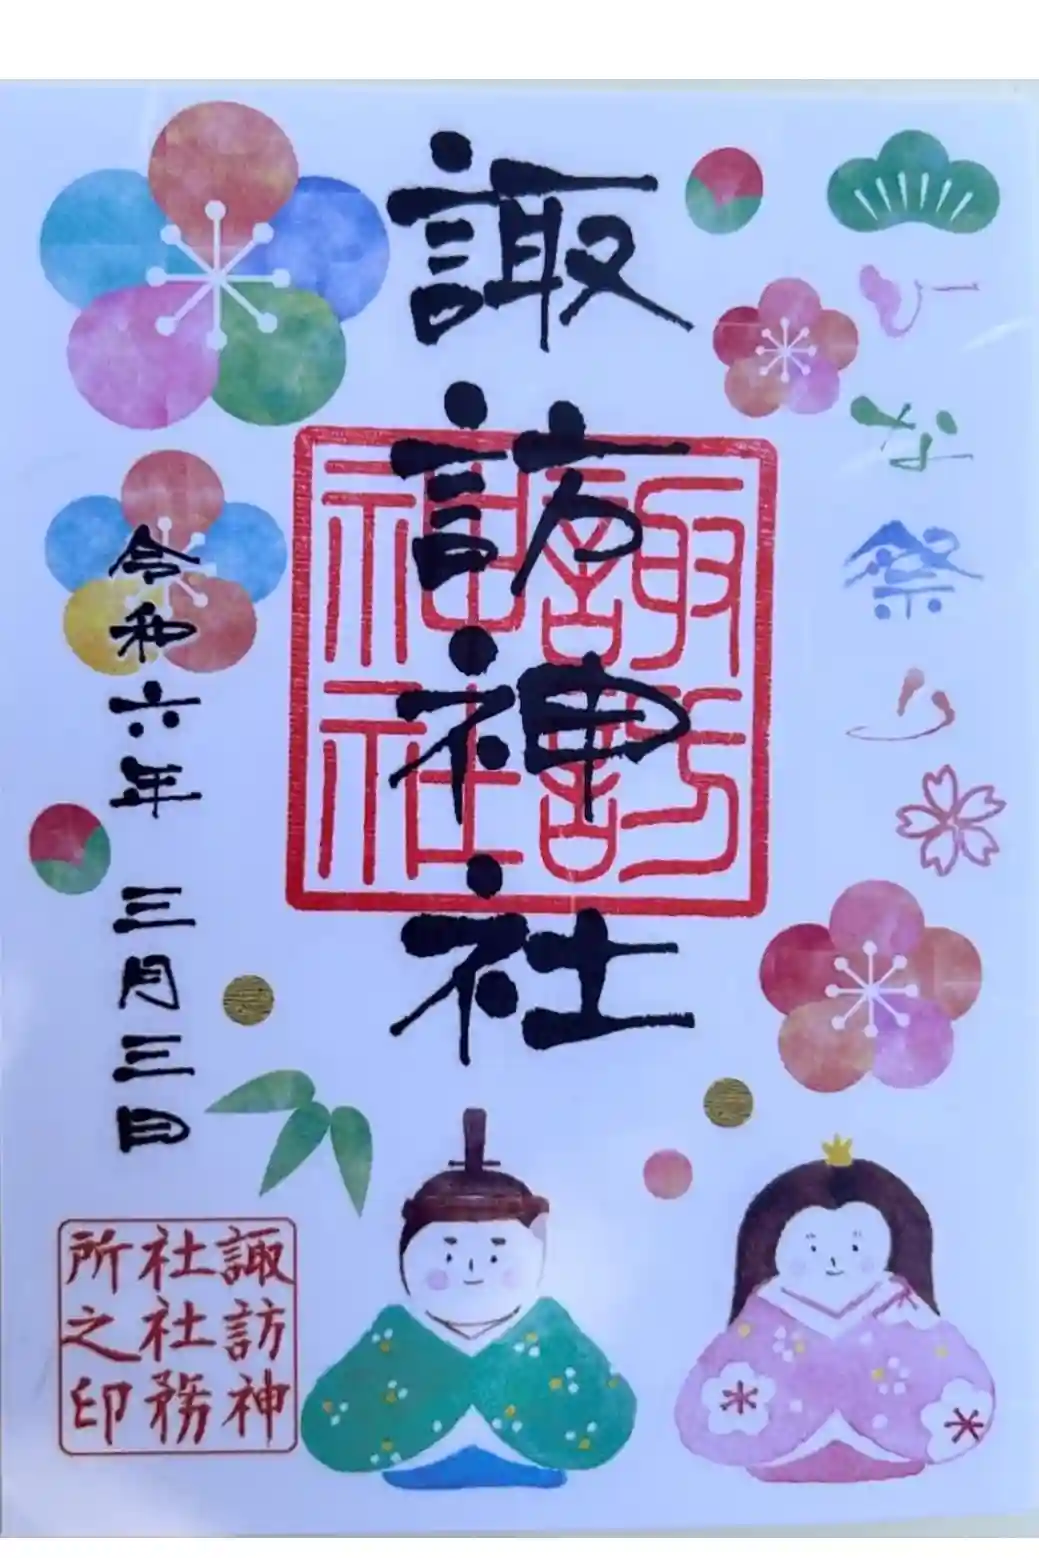 ひな祭り
諏訪神社
諏訪神社
令和六年 三月三日
諏訪神
社社務
所之印